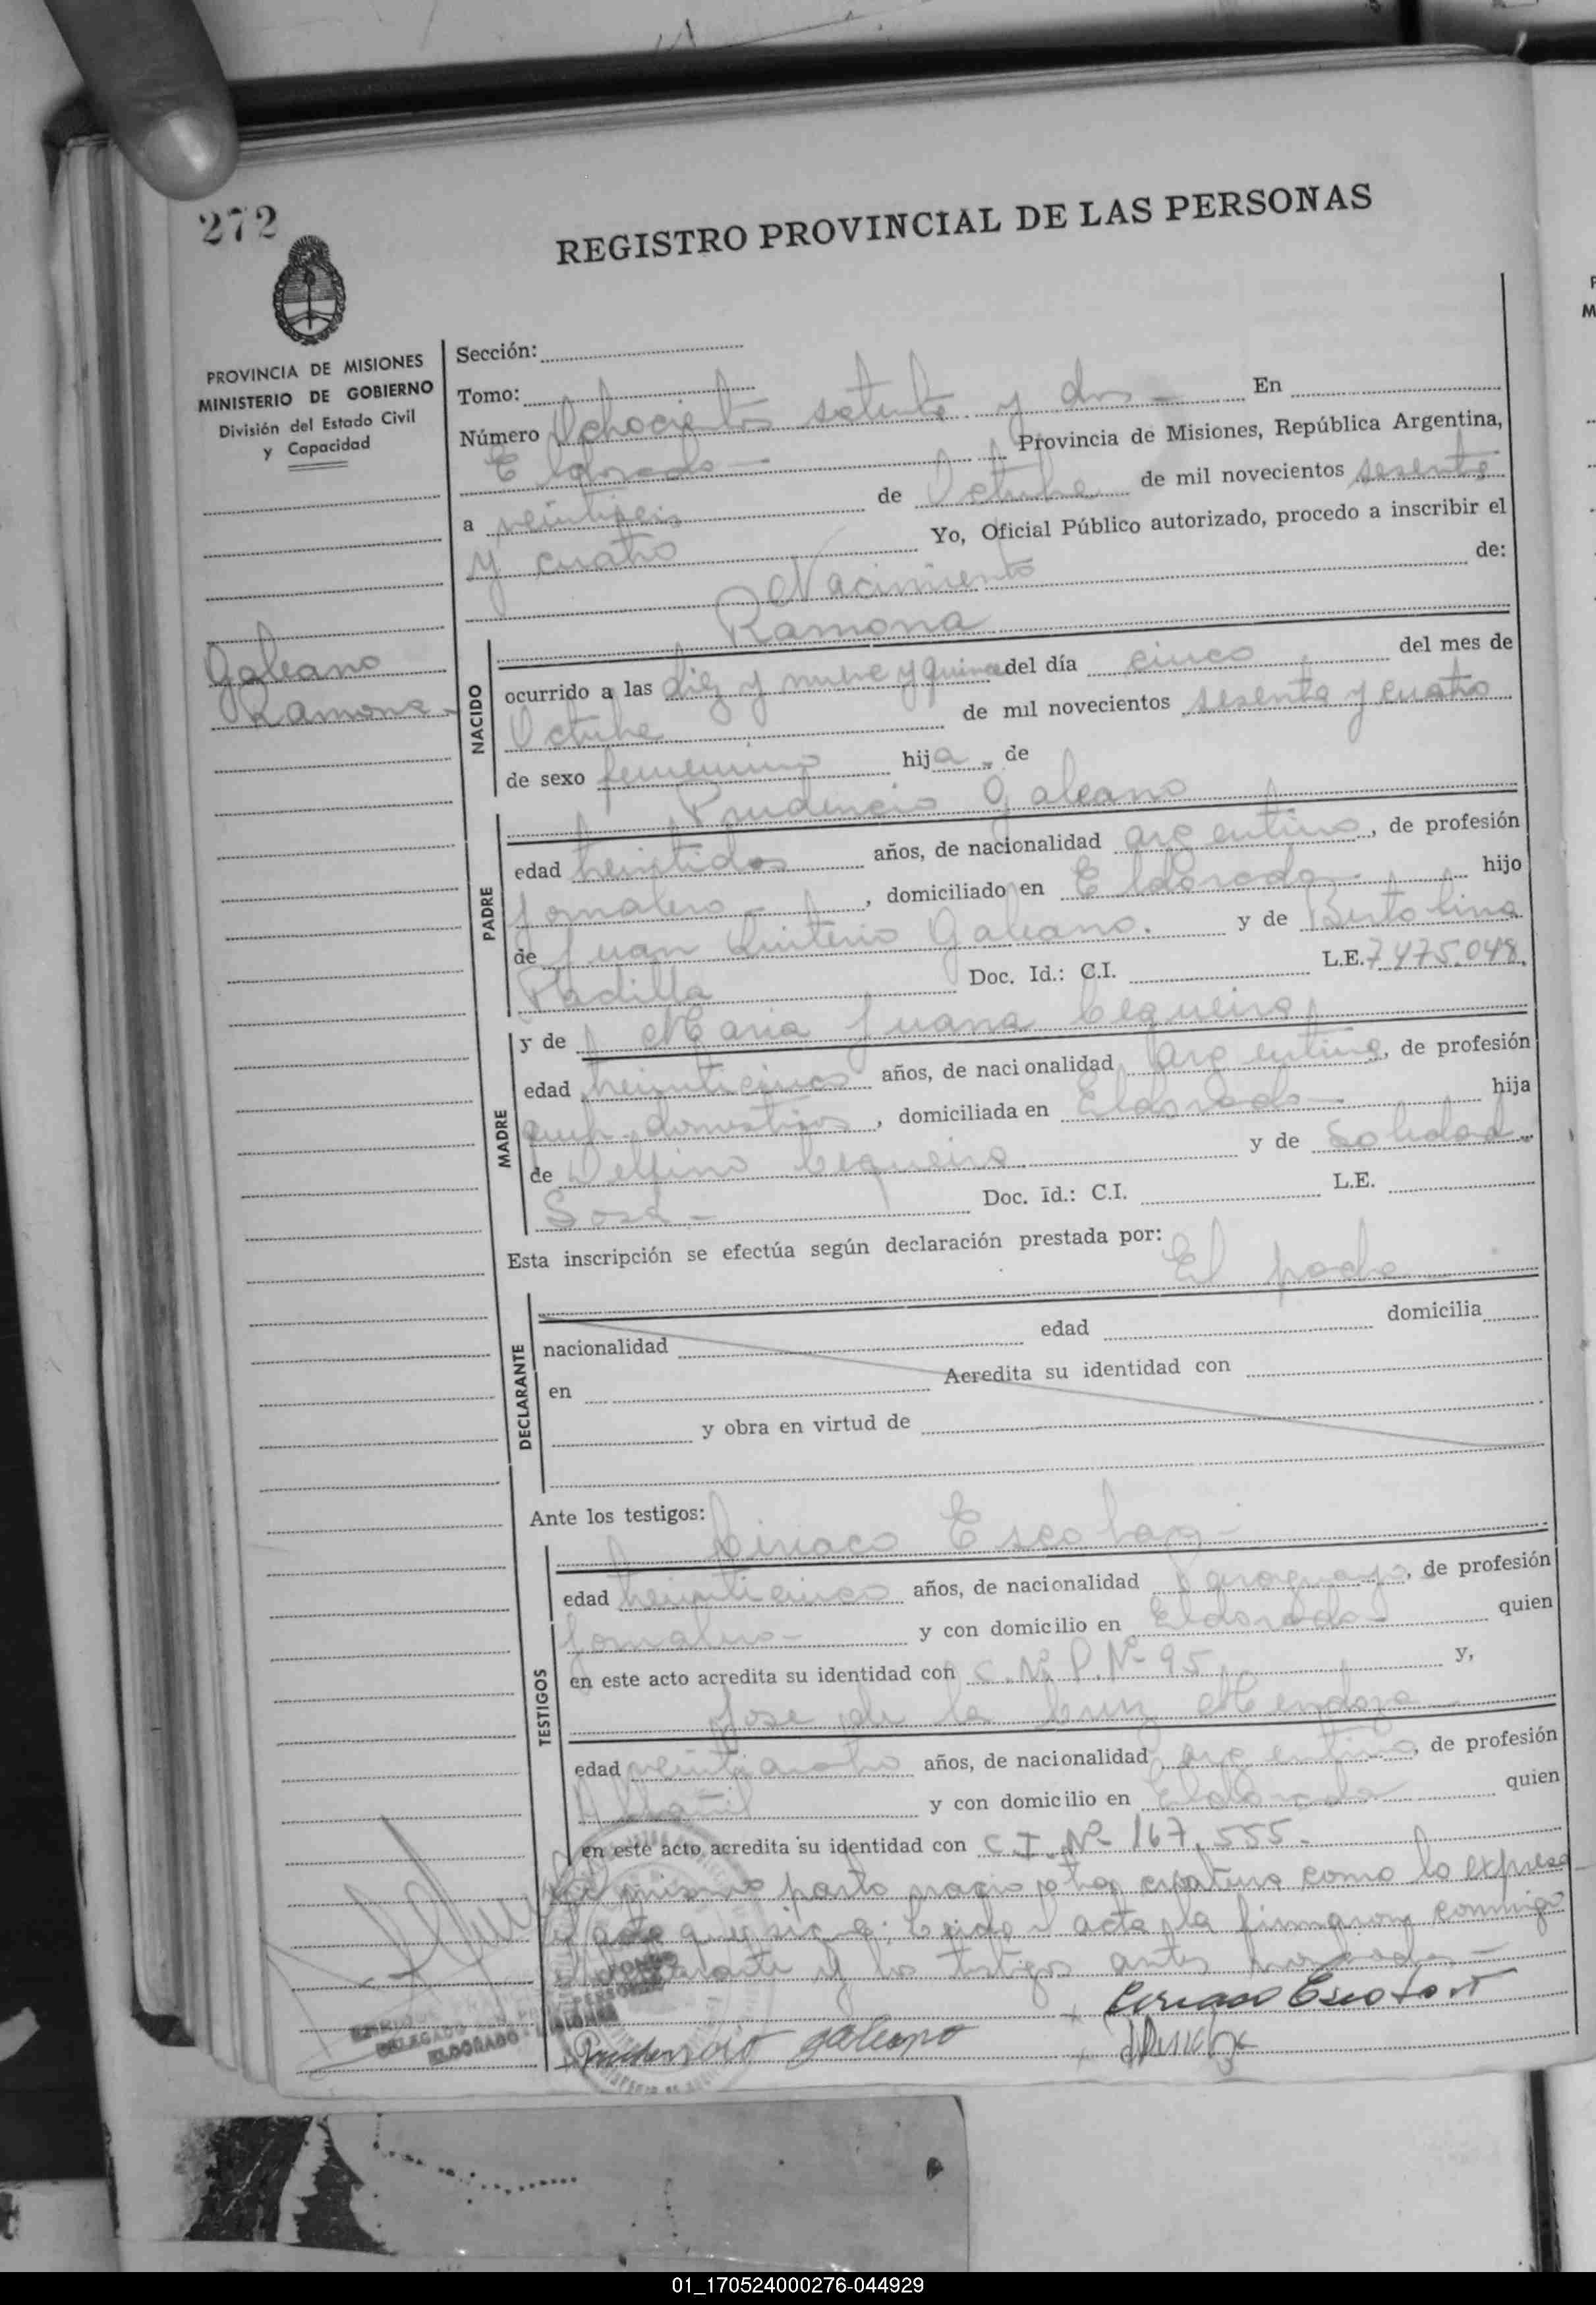 272
REGISTRO PROVINCIAL DE LAS PERSONAS
PROVINCIA DE MISIONES
MINISTERIO DE GOBIERNO
División del Estado Civil
y Capacidad
Galeano
Ramona
Sección:
Tomo:
Número Ochocientos setenta y dos - En
Eldorado - Provincia de Misiones, República Argentina,
a veintiseis de Octubre de mil novecientos sesenta
y cuatro Yo, Oficial Público autorizado, procedo a inscribir el
Nacimiento de:
Ramona
NACIDO
ocurrido a las diez y nueve y quince del día cinco del mes de
Octubre de mil novecientos sesenta y cuatro
de sexo femenino hija de
Prudencio Galeano
PADRE
edad veintidos años, de nacionalidad argentino, de profesión
Jornalero - , domiciliado en Eldorado - hijo
de Juan Quiterio Galeano. y de Bertolina
Padilla Doc. Id.: C.I. L.E. 7.475.048.
y de Maria Juana Cequeira
MADRE
edad veinticinco años, de nacionalidad argentina, de profesión
queh. domesticos, domiciliada en Eldorado - hija
de Delfino Cequeira y de Soledad
Sosa - Doc. Id.: C.I. L.E.
Esta inscripción se efectúa según declaración prestada por:
El padre
DECLARANTE
nacionalidad edad domicilia
en Acredita su identidad con
y obra en virtud de
Ante los testigos:
Ciriaco Escobar -
TESTIGOS
edad veinticinco años, de nacionalidad Paraguayo, de profesión
Jornalero - y con domicilio en Eldorado - quien
en este acto acredita su identidad con C. N. P. Nº 95 y,
Jose de la Cruz Mendoza
edad veinticuatro años, de nacionalidad argentino, de profesión
Albañil y con domicilio en Eldorado quien
en este acto acredita su identidad con C.I. Nº 167.555.-
mismo parto nacio otra criatura como lo expresa
el acta que sigue. Leida el acta, la firmaron conmigo
el declarante y los testigos antes
Ciriaco Escobar
Prudencio galeano
DELEGADO
ELDORADO - MISIONES
01_170524000276-044929